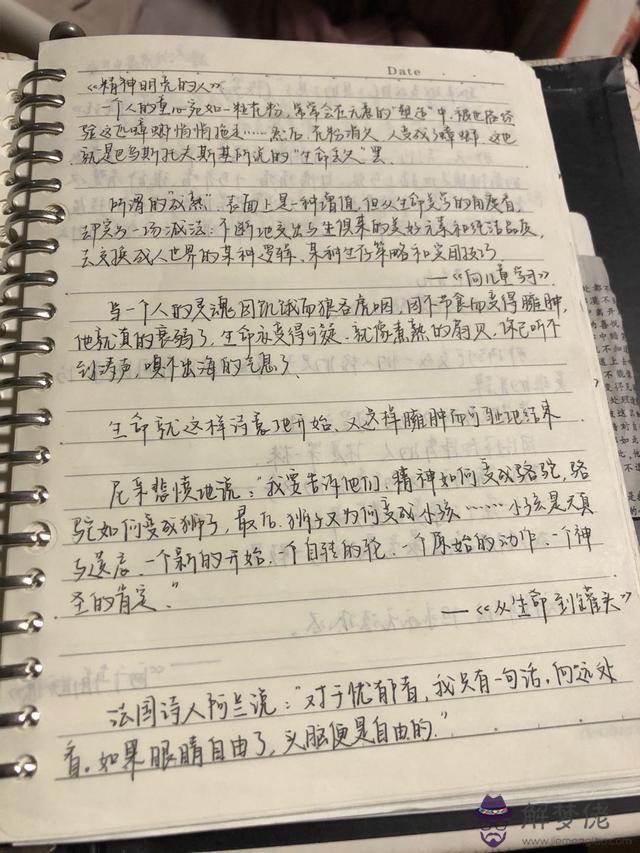 Date
《精神明亮的人》
一个人的童心宛如一粒花粉，常常会在无意的“塑造”中，被世俗经
验这匹蟑螂悄悄拖走……然后，花粉消失，人变成了蟑螂。这也
就是巴乌斯托夫斯基所说的“生命丢失”罢
所谓的“成熟”，表面上是一种增值，但从生命美学的角度看，
却实为一场减法：不断地交出与生俱来的美好元素和纯洁品质，
去交换成人世界的某种逻辑、某种生存策略和实用技巧
——《向儿童学习》
当一个人的灵魂因饥饿而狼吞虎咽，因不节食而变得臃肿，
他就真的衰弱了，生命亦变得可疑，就像煮熟的扇贝，你已听不
到涛声，嗅不出海的气息了。
生命就这样诗意地开始，又这样臃肿而可耻地结束
尼采悲愤地说：“我要告诉他们，精神如何变成骆驼，骆
驼如何变成狮子，最后，狮子又为何变成小孩……小孩是天真
与遗忘，一个新的开始，一个自转的轮，一个原始的动作，一个神
圣的肯定。”
——《从生命到罐头》
法国诗人阿兰说：“对于忧郁者，我只有一句话，向远处
看。如果眼睛自由了，头脑便是自由的。”
解梦佬